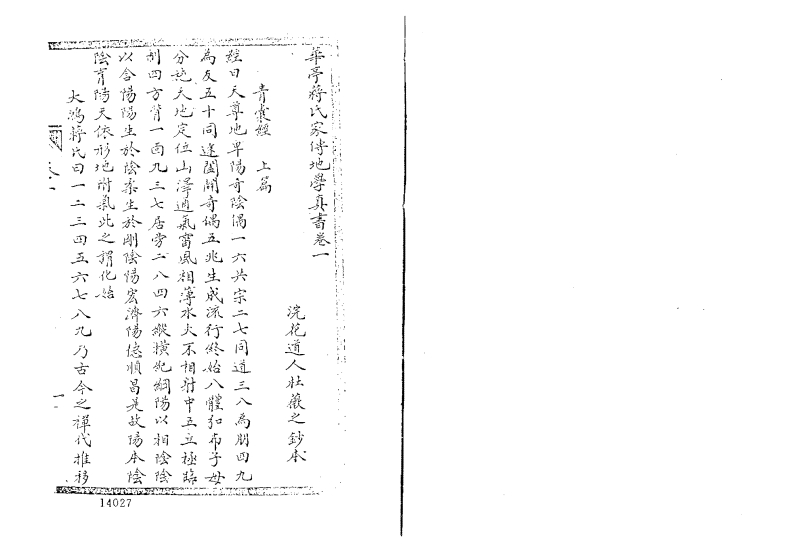 華亭蔣氏家傳地學真書卷一
浣花道人杜薇之鈔本
青囊經 上篇
經曰天尊地卑陽奇陰偶一六共宗二七同道三八為朋四九
為友五十同途闔闢奇偶五兆生成流行終始八體弘布子母
分施天地定位山澤通氣雷風相薄水火不相射中五立極臨
制四方背一面九三七居旁二八四六縱橫紀綱陽以相陰陰
以含陽陽生於陰柔生於剛陰陽宏濟陽德順昌是故陽本陰
陰育陽天依形地附氣此之謂化始
大鴻蔣氏曰一二三四五六七八九乃古今之禪代推移
一
14027